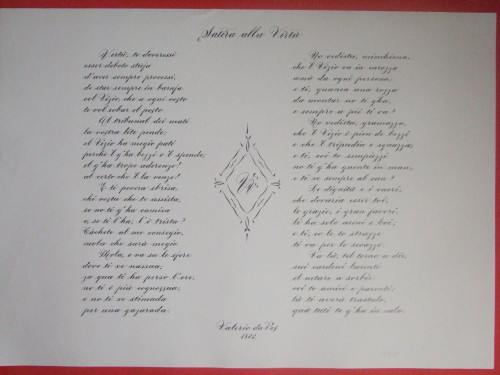 Satira alla Virtù
Virtù, te doveressi
esser deboto stufa
d'aver sempre processi,
de star sempre in barufa
col Vizio, che a ogni costo
te vol robar el posto.
Al tribunal dei mati
la vostra lite pende;
el Vizio ha megio pati
perché l' g'ha bezzi e l' spende,
el g'ha tropo aderenze!
al certo che l' la venze!
E ti povera sbrisa,
chi vostu che te assista,
se no ti g'ha camisa
e, se ti l'ha, l'è trista?
Escolta al mio consegio,
mola che sarà megio
Mola, e va su le sfere
dove ti xe nassua,
za qua ti ha perso l'ore,
no ti è più cognossua,
e no ti xe stimada
per una gazarada.
No vedistu, minchiona,
che l' Vizio va in carozza
amà da ogni persona,
e ti, quando una rozza
da montar no ti g'ha,
e sempre a piè ti va?
No vedistu, gramazza,
che l' Vizio è pien de bezzi
e che l' tripudia e sguazza;
e ti, coi to
no ti g'ha gnente in man,
e ti xe sempre al can?
Le dignità e i onori,
che dovaria esser toi,
le grazie, i gran favori
li ha solo aseni e boi;
e ti, se le to strazze
ti va per le
Va là, tel torno a dir,
sui cardeni lusenti
el netare a sorbir
coi to amici e parenti;
là ti averà trastulo,
qua tuti te g'ha in culo.
Valerio da Pos
1822